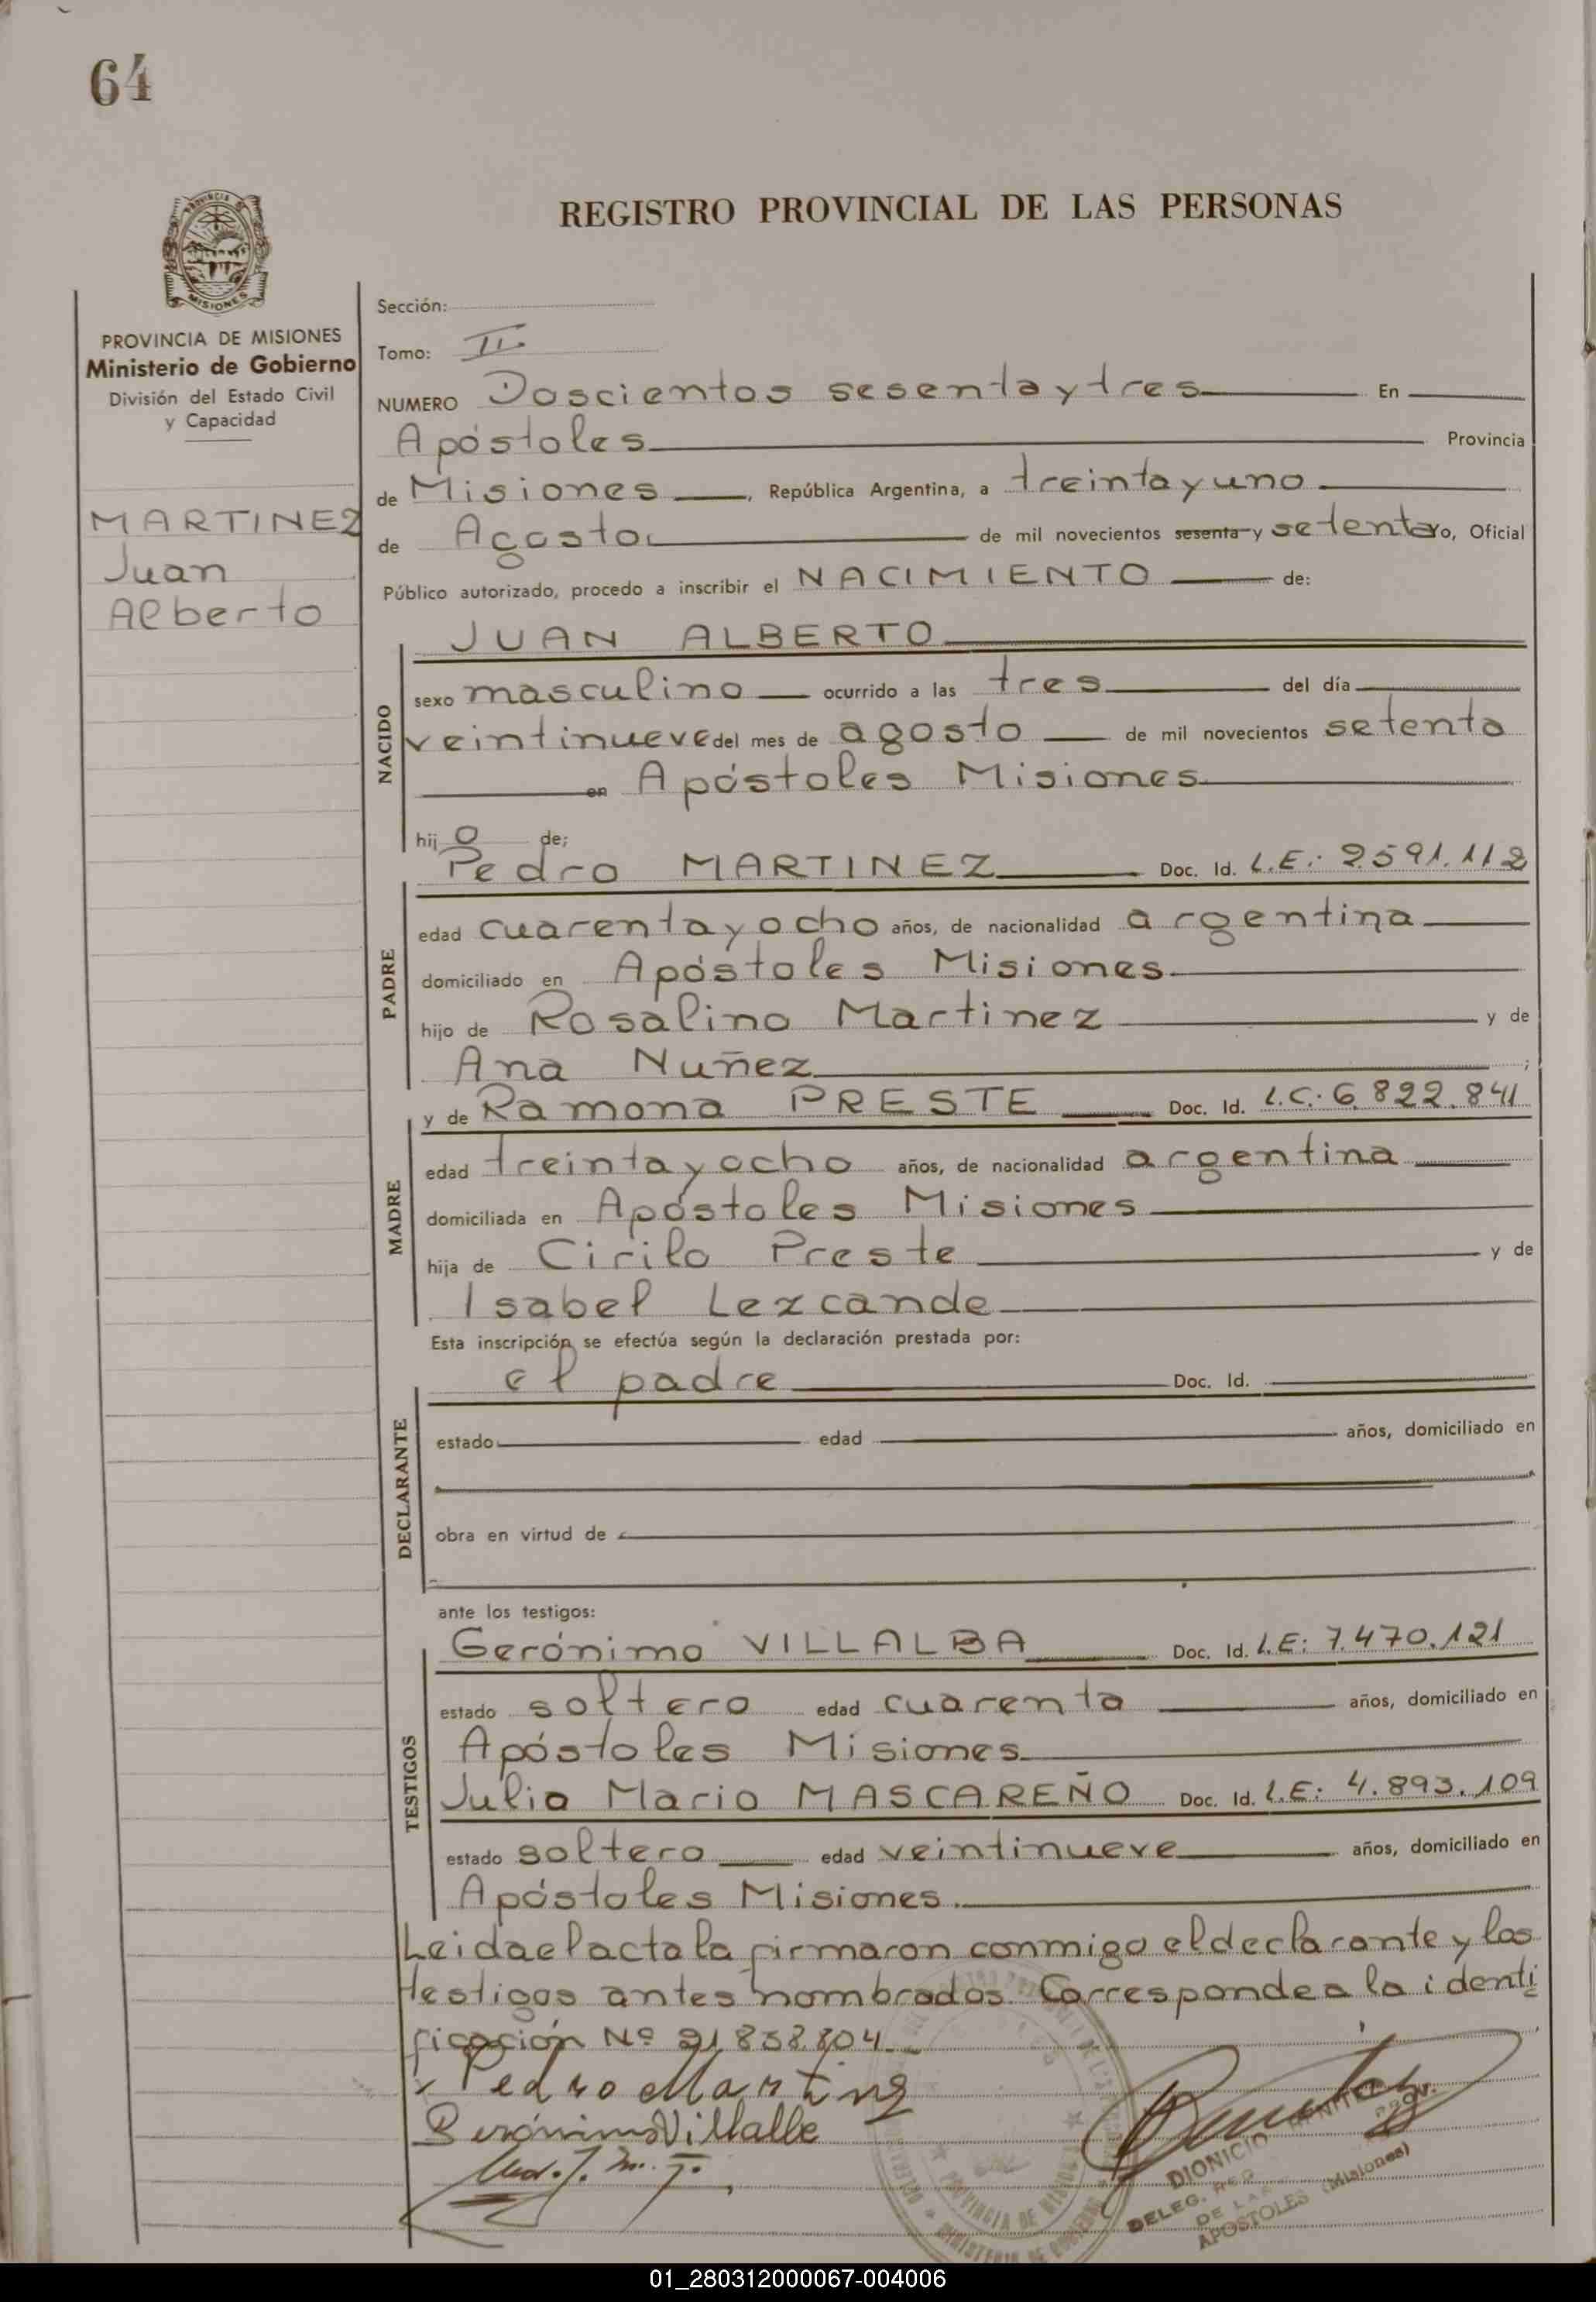 64
REGISTRO PROVINCIAL DE LAS PERSONAS
PROVINCIA DE
MISIONES
PROVINCIA DE MISIONES
Ministerio de Gobierno
División del Estado Civil
y Capacidad
MARTINEZ
Juan
Alberto
Sección:
Tomo: II
NUMERO Doscientos sesenta y tres En
Apóstoles Provincia
de Misiones , República Argentina, a treinta y uno
de Agosto de mil novecientos sesenta y setenta yo, Oficial
Público autorizado, procedo a inscribir el NACIMIENTO de:
NACIDO
JUAN ALBERTO
sexo masculino ocurrido a las tres del día
veintinueve del mes de agosto de mil novecientos setenta
en Apóstoles Misiones
hijo de;
PADRE
Pedro MARTINEZ Doc. Id. L.E.: 2.591.112
edad cuarenta y ocho años, de nacionalidad argentina
domiciliado en Apóstoles Misiones
hijo de Rosalino Martinez y de
Ana Nuñez ;
MADRE
y de Ramona PRESTE Doc. Id. L.C.: 6.822.841
edad treinta y ocho años, de nacionalidad argentina
domiciliada en Apóstoles Misiones
hija de Cirilo Preste y de
Isabel Lezcande
Esta inscripción se efectúa según la declaración prestada por:
DECLARANTE
el padre Doc. Id.
estado edad años, domiciliado en
obra en virtud de
ante los testigos:
TESTIGOS
Gerónimo VILLALBA Doc. Id. L.E: 7.470.121
estado soltero edad cuarenta años, domiciliado en
Apóstoles Misiones
Julio Mario MASCAREÑO Doc. Id. L.E: 4.893.109
estado soltero edad veintinueve años, domiciliado en
Apóstoles Misiones.
Leida el acta la firmaron conmigo el declarante y los
testigos antes nombrados. Corresponde a la identi
ficación Nº 21.838.804
Pedro Martinz
Gerónimo Villalbe
PROVINCIA DE MISIONES
MINISTERIO DE GOBIERNO
DIONICIO BENITEZ
DELEG. REG. PROV.
DE LAS
APOSTOLES (Misiones)
01_280312000067-004006